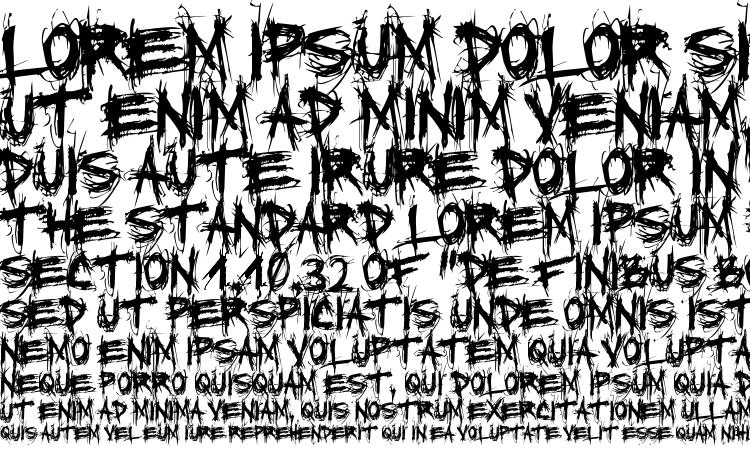 LOREM IPSUM DOLOR SI
UT ENIM AD MINIM VENIAM
DUIS AUTE IRURE DOLOR IN
THE STANDARD LOREM IPSUM
SECTION 1.10.32 OF "DE FINIBUS BO
SED UT PERSPICIATIS UNDE OMNIS IST
NEMO ENIM IPSAM VOLUPTATEM QUIA VOLUPTA
NEQUE PORRO QUISQUAM EST, QUI DOLOREM IPSUM QUIA D
UT ENIM AD MINIMA VENIAM, QUIS NOSTRUM EXERCITATIONEM ULLAM
QUIS AUTEM VEL EUM IURE REPREHENDERIT QUI IN EA VOLUPTATE VELIT ESSE QUAM NIHI